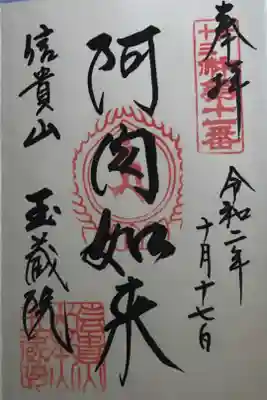 奉拝
十三仏第十二番
令和二年
十月十七日
阿閦如来
信貴山
玉蔵院